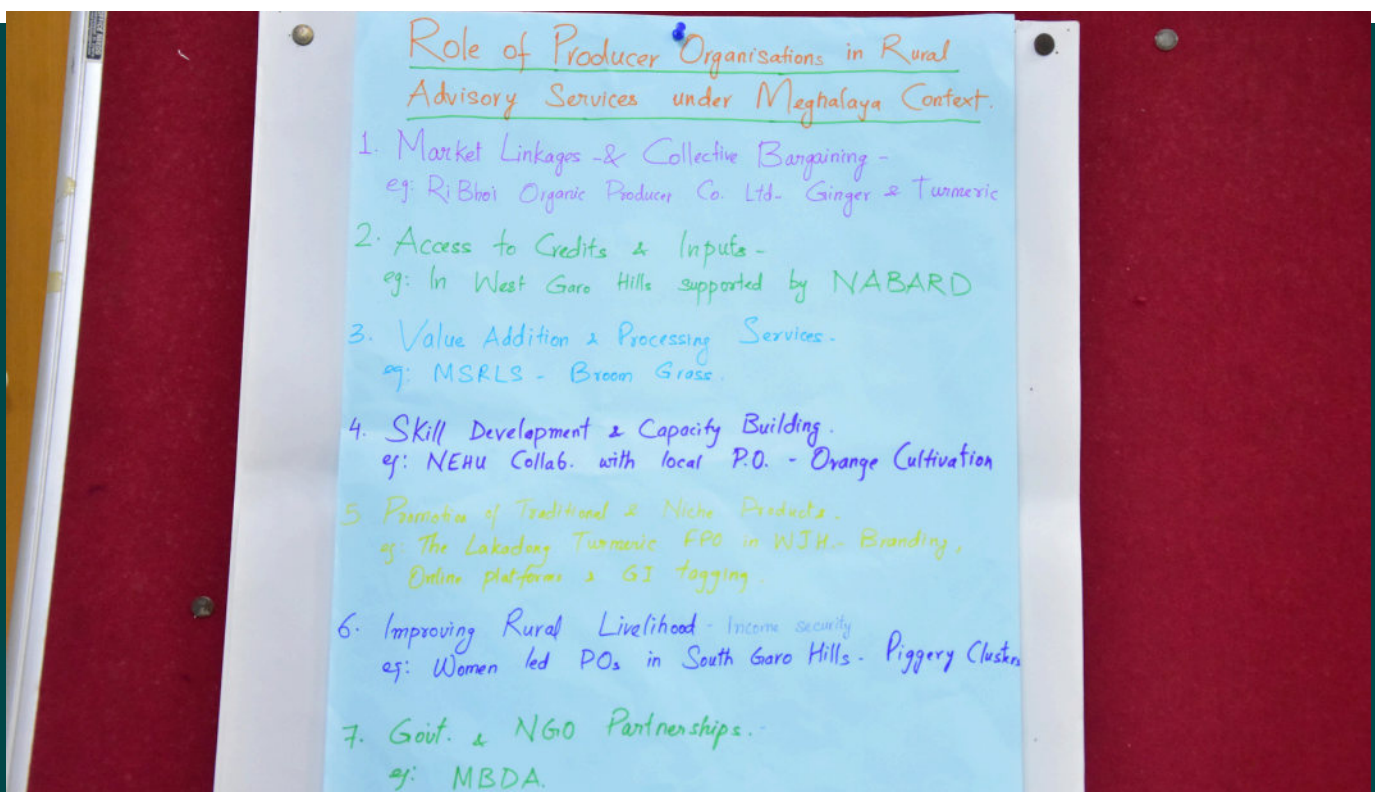 Role of Producer Organisations in Rural
Advisory Services under Meghalaya Context.
1. Market Linkages & Collective Bargaining -
eg: Ri Bhoi Organic Producer Co. Ltd- Ginger & Turmeric
2. Access to Credits & Inputs -
eg: In West Garo Hills supported by NABARD
3. Value Addition & Processing Services.
eg: MSRLS - Broom Grass.
4. Skill Development & Capacity Building.
eg: NEHU Collab. with local P.O. - Orange Cultivation
5 Promotion of Traditional & Niche Products.
eg: The Lakadong Turmeric FPO in WJH - Branding,
Online platforms & GI tagging.
6. Improving Rural Livelihood - Income security
eg: Women led POs in South Garo Hills - Piggery Clusters
7. Govt. & NGO Partnerships. -
eg: MBDA.